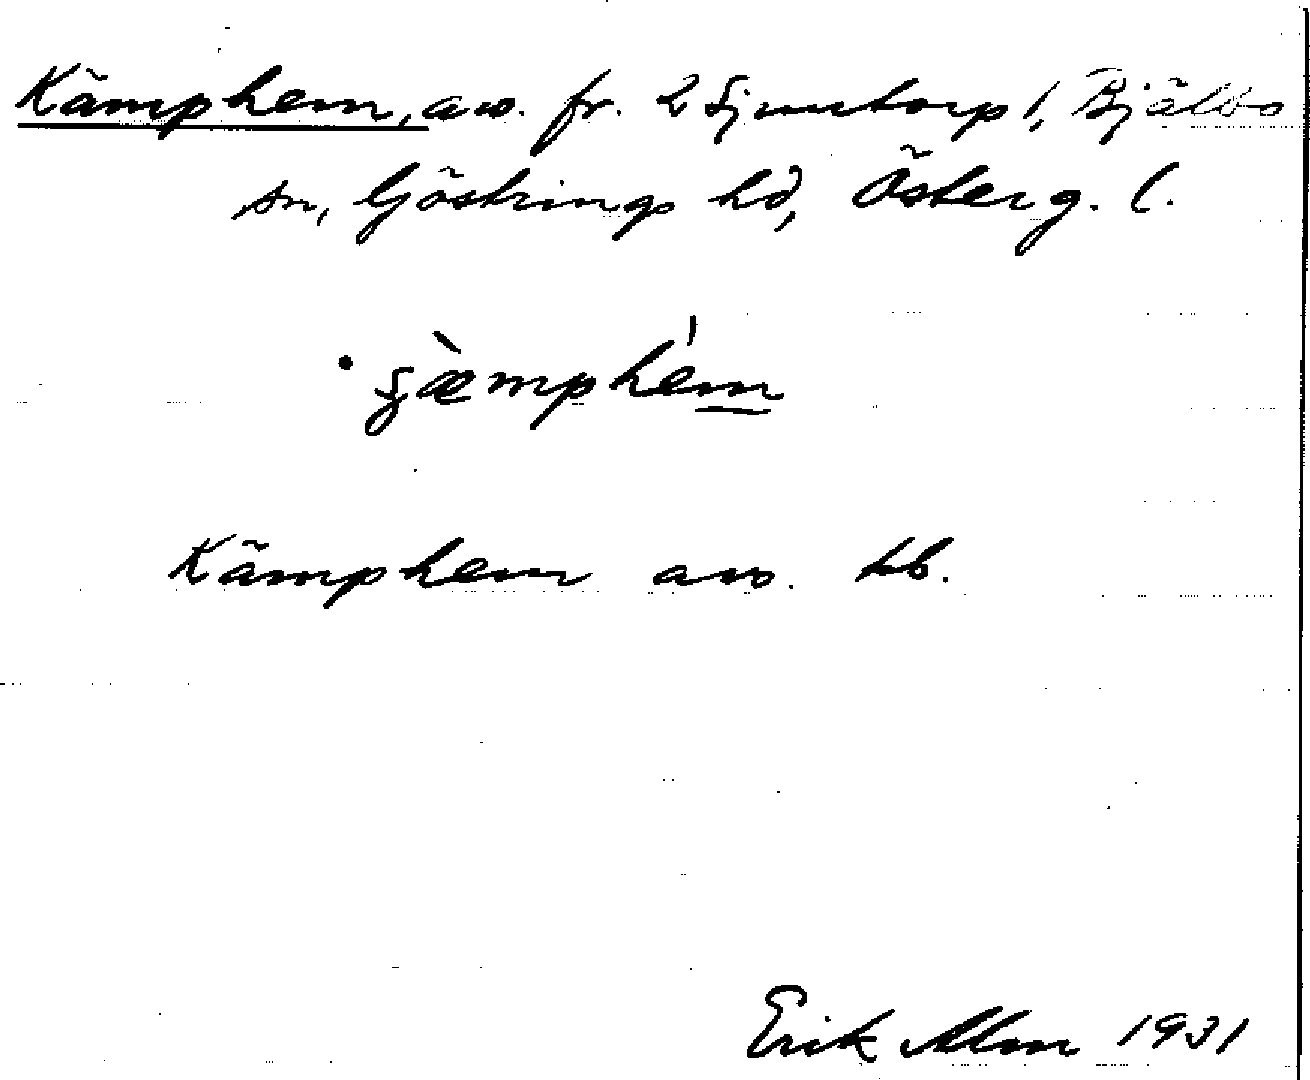 Kämphem, avs. fr. 2 Sjuntorp 1, Bjälbo
sn, Göstrings hd, Österg. l.
kämphem
Kämphem avs. kb.
Erik Alm 1931